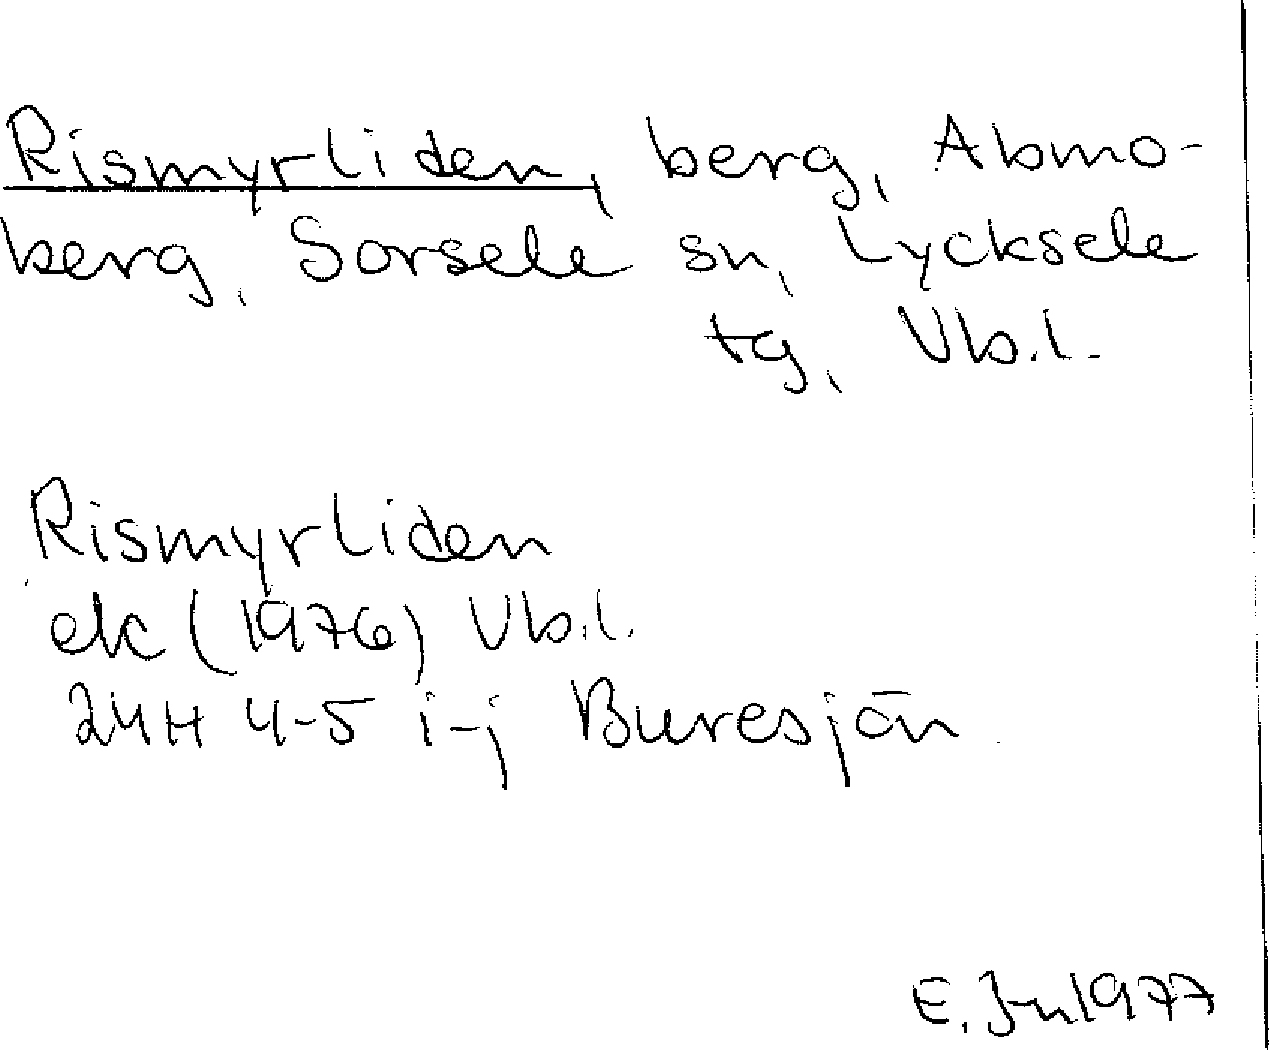 Rismyrliden, berg, Abmo-
berg, Sorsele sn, Lycksele
tg, Vb.l.
Rismyrliden
ek (1976) Vb.l.
24H 4-5 i-j Buresjön
E. Jn 1977